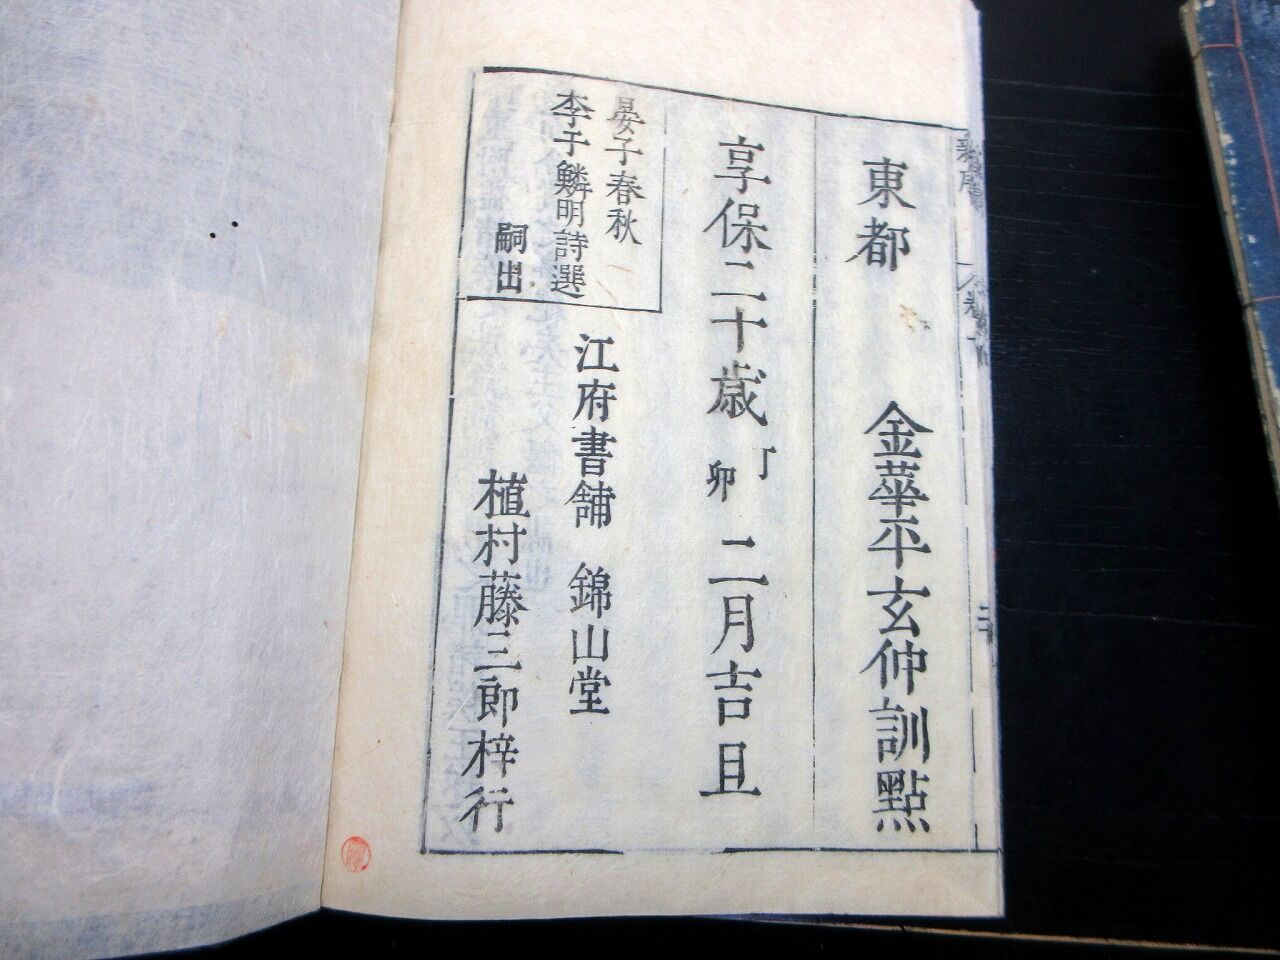 東都 金華平玄仲訓點
享保二十歳 丁卯 二月吉且
晏子春秋
李于鱗明詩選
嗣出
江府書舖 錦山堂
植村藤三郎梓行